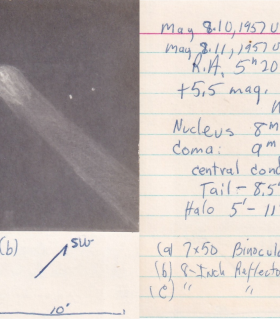 May 8.10, 1957 U
May 8.11, 1957 U
R.A. 5ʰ 20
+5.5 mag.
Nucleus 8ᵐ
Coma: 9ᵐ
central cond
Tail - 8.5°
Halo 5' - 11
(b)
SW
10'
(a) 7x50 Binocula
(b) 8-Inch Reflecto
(c) " "